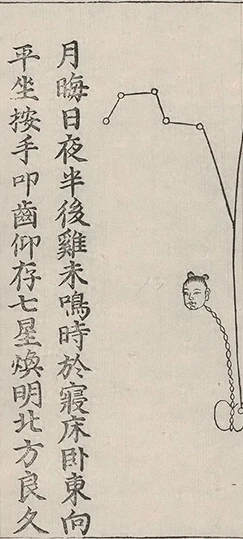 月晦日夜半後雞未鳴時於寢床卧東向
平坐按手叩齒仰存七星煥明北方良久